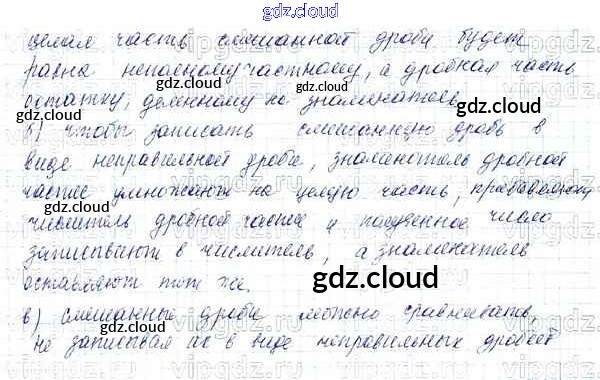 gdz.cloud
целая часть смешанной дроби будет
равна неполному частному, а дробная часть
остатку, деленному на знаменатель.
б) чтобы записать смешанную дробь в
виде неправильной дроби, знаменатель дробной
части умножают на целую часть, прибавляют
числитель дробной части и полученное число
записывают в числитель, а знаменатель
оставляют тот же.
в) смешанные дроби можно сравнивать,
не записывая их в виде неправильных дробей